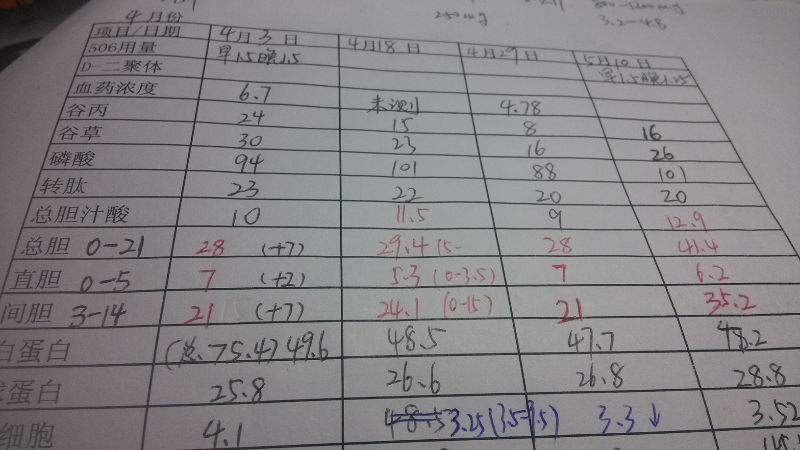 250mg
3.2-4.8
4月份
项目/日期 4月3日 4月18日 4月29日 5月10日
506用量 早1.5晚1.5 早1.5晚1.25
D-二聚体
血药浓度 6.7 未测 4.78
谷丙 24 15 8 16
谷草 30 23 16 26
磷酸 94 101 88 101
转肽 23 22 20 20
总胆汁酸 10 11.5 9 12.9
总胆 0-21 28 (+7) 29.4 (5- 28 41.4
直胆 0-5 7 (+2) 5.3 (0-3.5) 7 6.2
间胆 3-14 21 (+7) 24.1 (0-15) 21 35.2
白蛋白 (总.75.4) 49.6 48.5 47.7 48.2
蛋白 25.8 26.6 26.8 28.8
细胞 4.1 48.5 3.25 (3.5-9.5) 3.3↓ 3.52